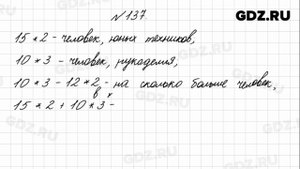 GDZ.RU
№ 137.
15 * 2 - человек, юных техников,
10 * 3 - человек, рукоделия,
10 * 3 - 12 * 2 - на сколько больше человек,
в
15 * 2 + 10 * 3 -